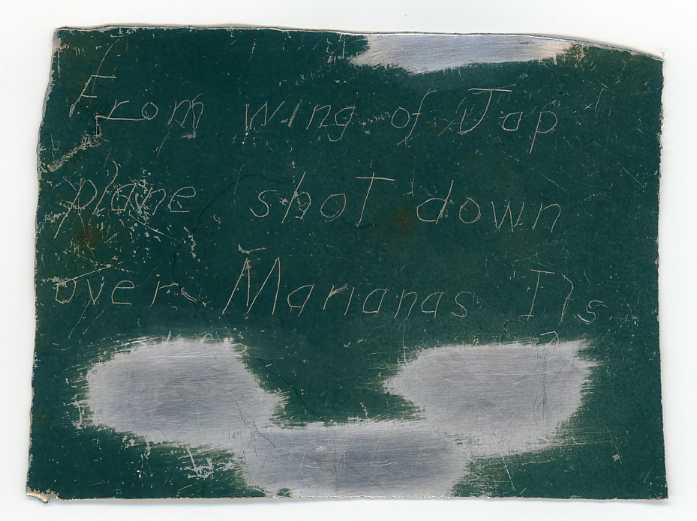 From wing of Jap
plane shot down
over Marianas Ils